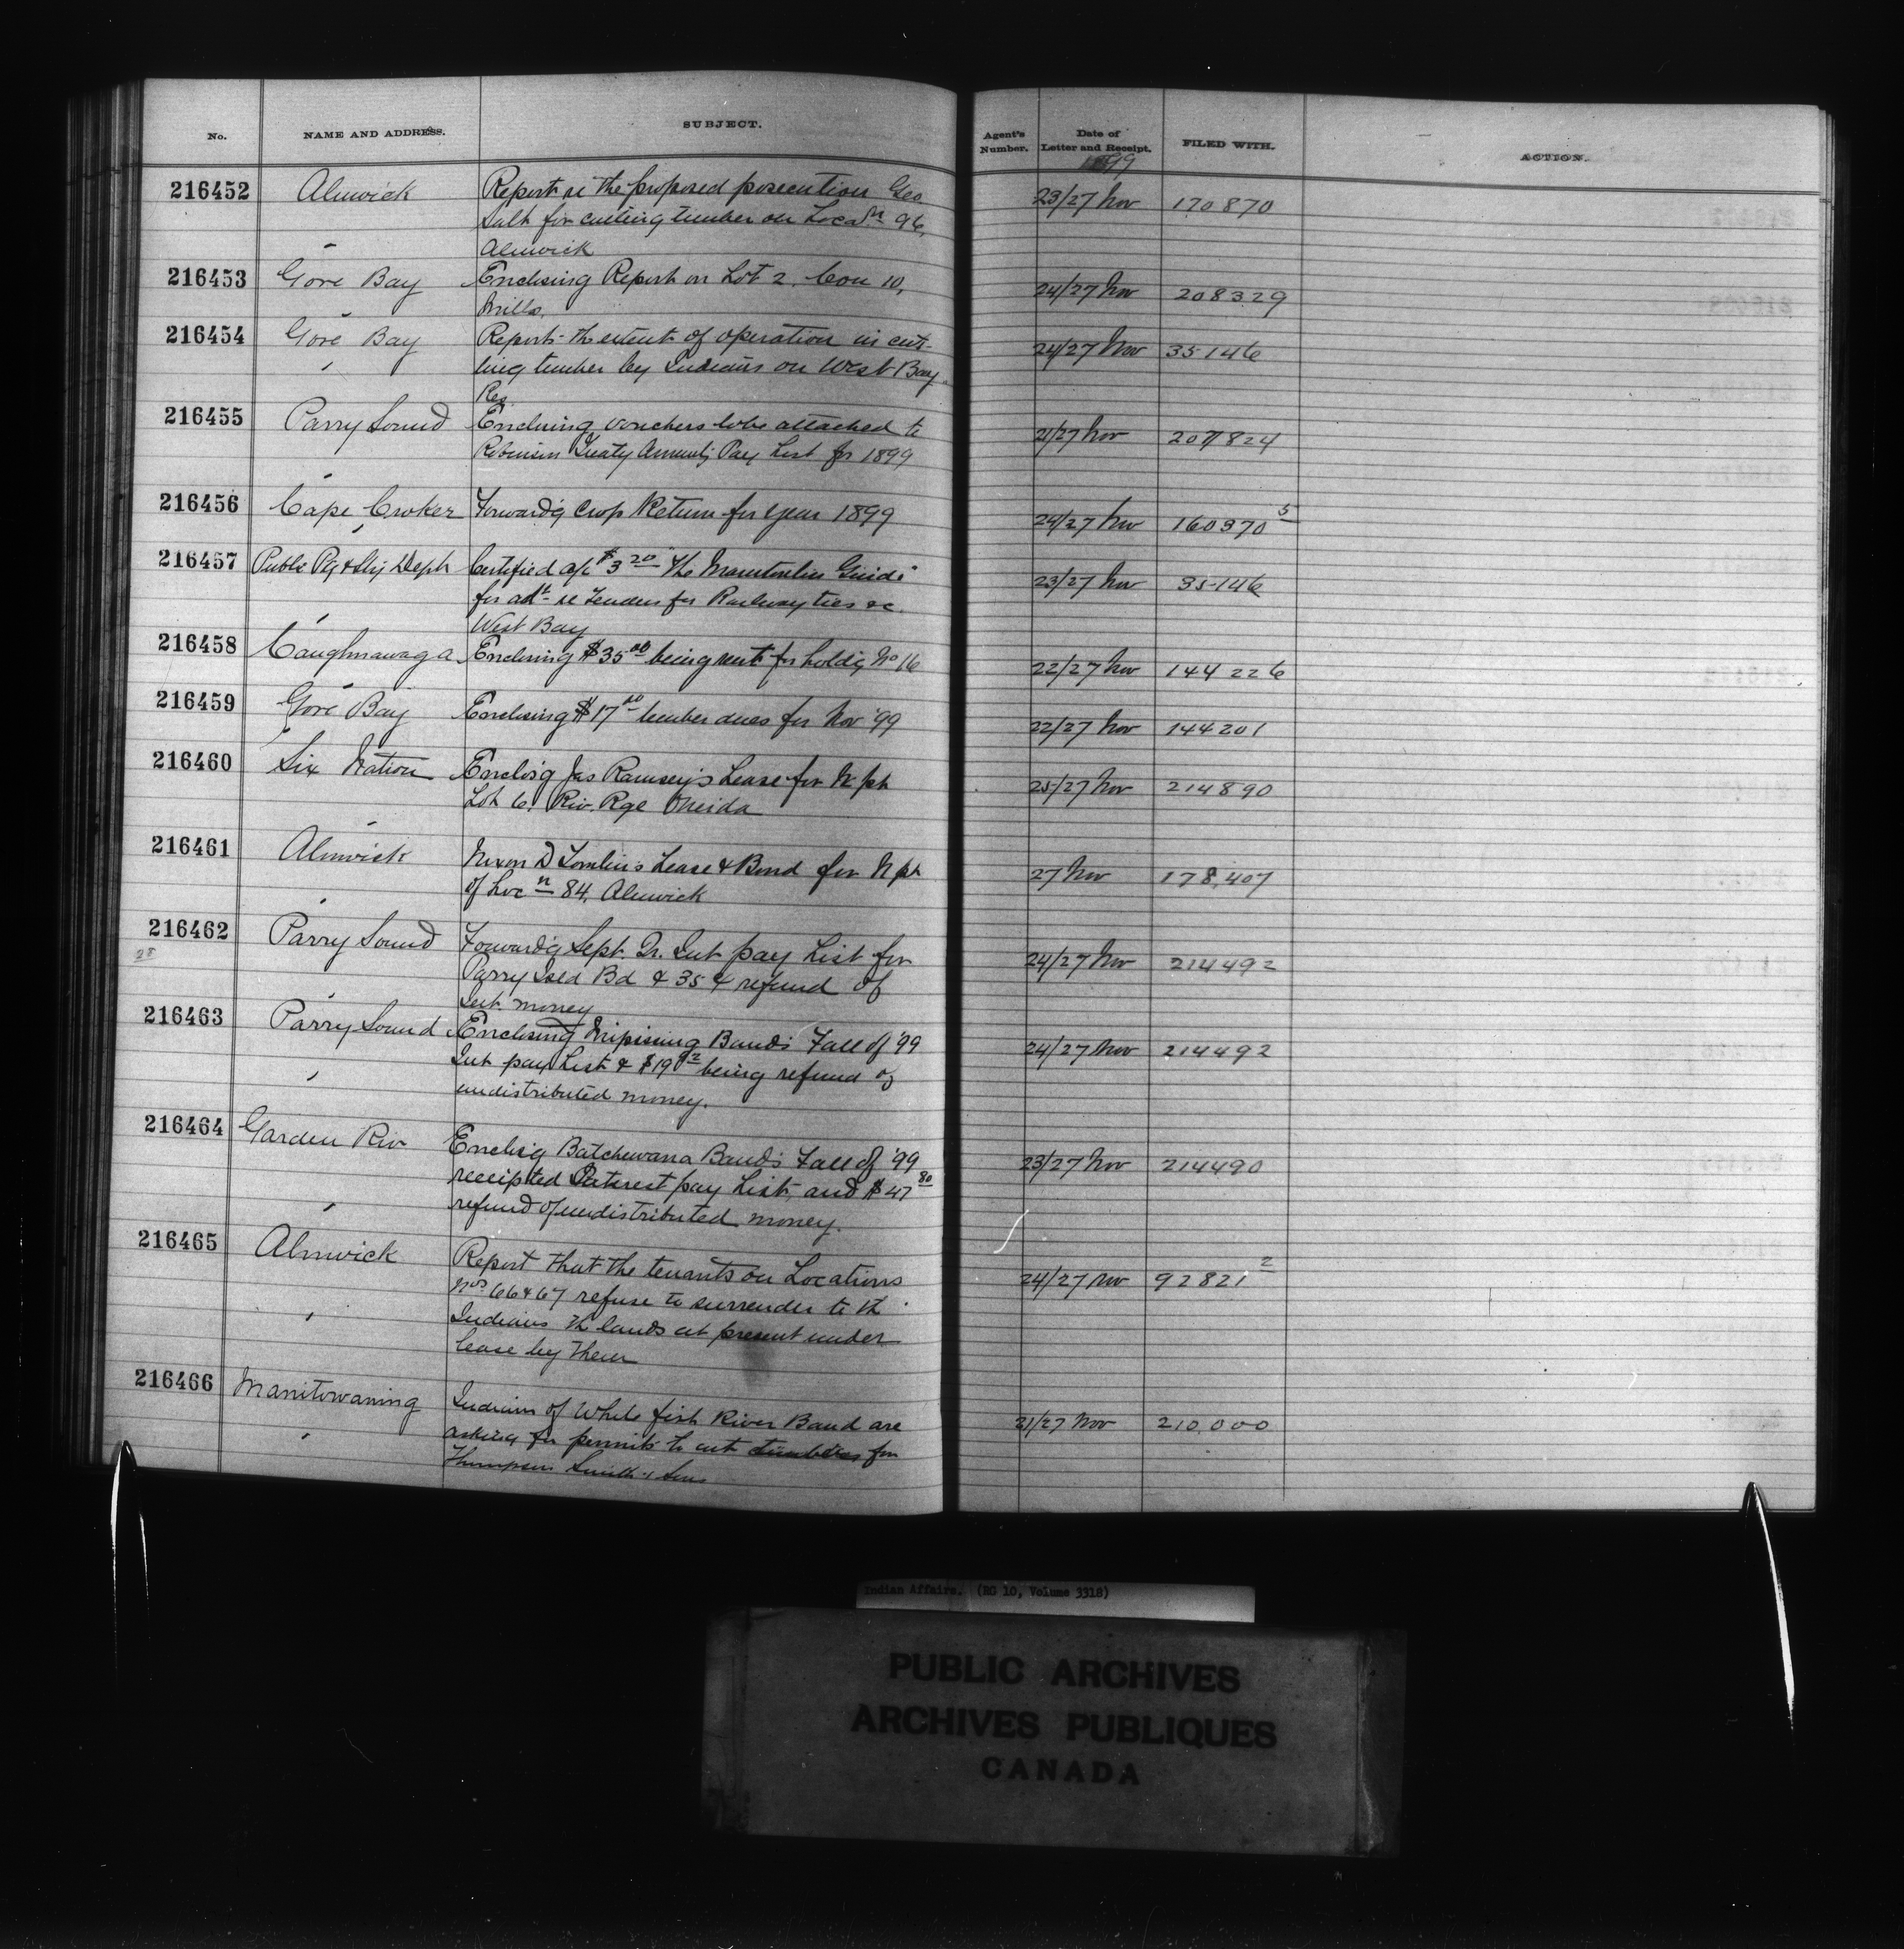 No. NAME AND ADDRESS. SUBJECT. Agent's Number. Date of Letter and Receipt. FILED WITH. ACTION.
1899
216452 Alnwick Report re the proposed prosecution Geo 23/27 Nov 170870
Salt for cutting timber on Locan 96,
Alnwick
216453 Gore Bay Enclosing Report on Lot 2. Con 10, 24/27 Nov 208329
Mills.
216454 Gore Bay Reports the extent of operation in cut- 24/27 Nov 35146
ting timber by Indians on West Bay
Res.
216455 Parry Sound Enclosing vouchers to be attached to 21/27 Nov 207824
Robinson Treaty Annuity Pay List for 1899
216456 Cape Croker Forward'g Crop Return for year 1899 24/27 Nov 160370 5
216457 Public Ptg & Sty Dept Certified a/c $3 20 "The Manitoulin Guide" 23/27 Nov 35146
for adt re Tenders for Railway ties &c
West Bay
216458 Caughnawaga Enclosing $35 00 being rent for holdg No 16 22/27 Nov 144226
216459 Gore Bay Enclosing $17 00 timber dues for Nov '99 22/27 Nov 144201
216460 Six Nation Enclos'g Jas Ramsey's Lease for N pt 25/27 Nov 214890
Lot 6. Riv. Rge Oneida
216461 Alnwick Nixon D Tomlin's Lease & Bond for N pt 27 Nov 178,407
of Locn 84, Alnwick
216462 Parry Sound Forward'g Sept. Qr. Int pay List for 24/27 Nov 214492
28 Parry Isld Bd & 35 ¢ refund of
Int. money
216463 Parry Sound Enclosing Nipissing Band's Fall of '99 24/27 Nov 214492
Int pay List & $19 92 being refund of
undistributed money.
216464 Garden Riv Enclos'g Batchewana Band's Fall of '99 23/27 Nov 214490
receipted Interest pay List, and $47 80
refund of undistributed money.
216465 Alnwick Report that the tenants on Locations 24/27 Nov 92821 2
Nos 66 & 67 refuse to surrender to th
Indians th lands at present under
lease by them
216466 Manitowaning Indians of White fish River Band are 21/27 Nov 210,000
asking for permits to cut timber for
Thompson Smith & Sons
Indian Affairs. (RG 10, Volume 3318)
PUBLIC ARCHIVES
ARCHIVES PUBLIQUES
CANADA